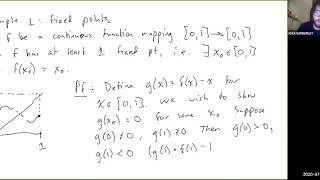 mple 1: fixed points
f be a continuous function mapping [0,1]→[0,1]
f has at least 1 fixed pt, i.e. ∃ x₀∈[0,1]
f(x₀) = x₀.
Pf: Define g(x)=f(x)-x for
x∈[0,1]. we wish to show
g(x₀)=0 for some x₀. Suppose
g(0)≠0, g(1)≠0. Then g(0)>0,
g(1)<0 (g(1)=f(1)-1
1
2020-07